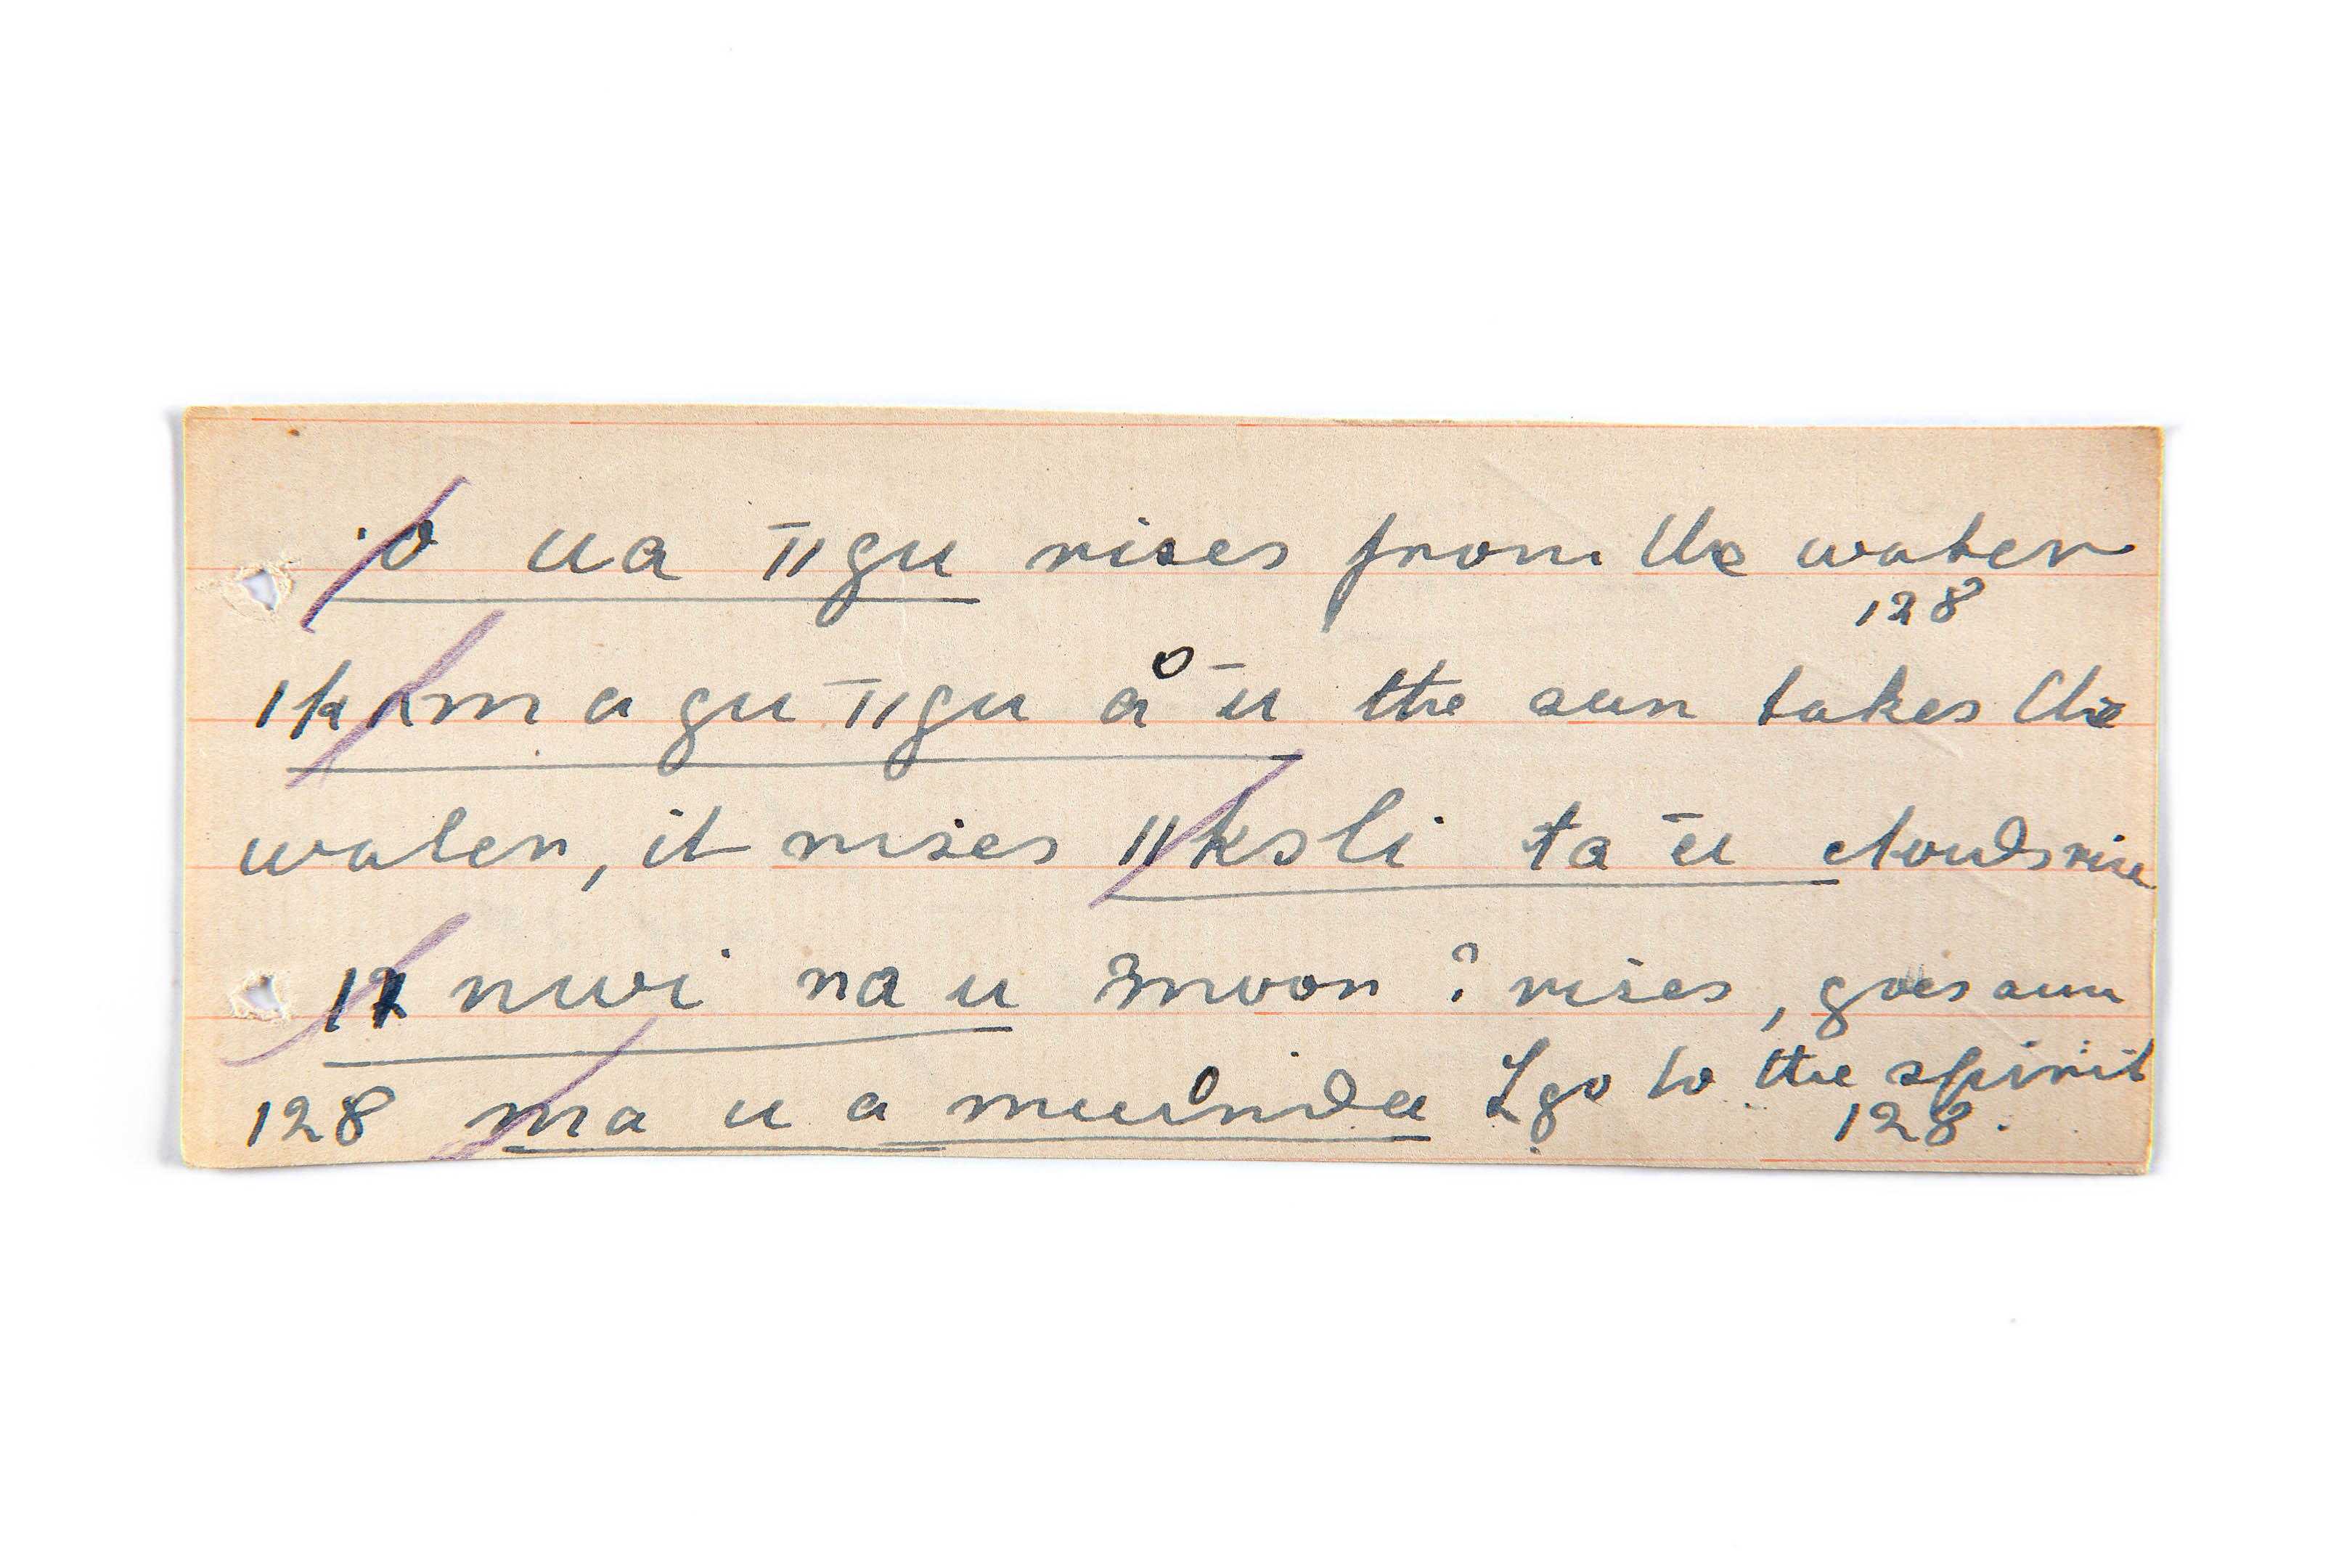 o ua īīgu rises from the water
128
m a gu īīgu å ū the sun takes the
water, it rises ǁksli ta ū clouds rise
nwi na u moon ? rises, goes
128 ma u a I go to the spirit
128.